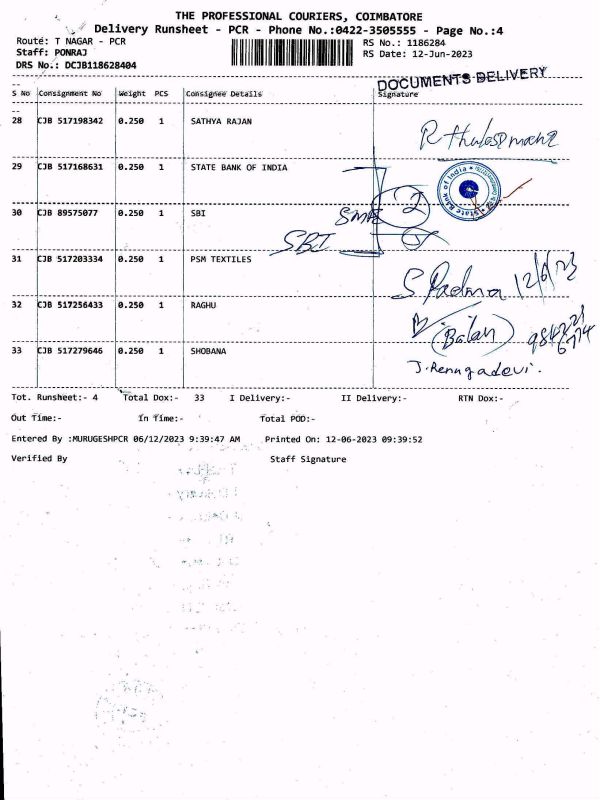 THE PROFESSIONAL COURIERS, COIMBATORE
Delivery Runsheet - PCR - Phone No.:0422-3505555 - Page No.:4
Route: T NAGAR - PCR RS No.: 1186284
Staff: PONRAJ RS Date: 12-Jun-2023
DRS No.: DCJB118628404
DOCUMENTS DELIVERY
S No Consignment No Weight PCS Consignee Details Signature
28 CJB 517198342 0.250 1 SATHYA RAJAN
29 CJB 517168631 0.250 1 STATE BANK OF INDIA
State Bank of India
30 CJB 89575077 0.250 1 SBI
2
SBI
31 CJB 517203334 0.250 1 PSM TEXTILES
S. Padma 12/6/23
32 CJB 517256433 0.250 1 RAGHU
(Balan)
33 CJB 517279646 0.250 1 SHOBANA
J. Rengadevi.
Tot. Runsheet:- 4 Total Dox:- 33 I Delivery:- II Delivery:- RTN Dox:-
Out Time:- In Time:- Total POD:-
Entered By :MURUGESHPCR 06/12/2023 9:39:47 AM Printed On: 12-06-2023 09:39:52
Verified By Staff Signature